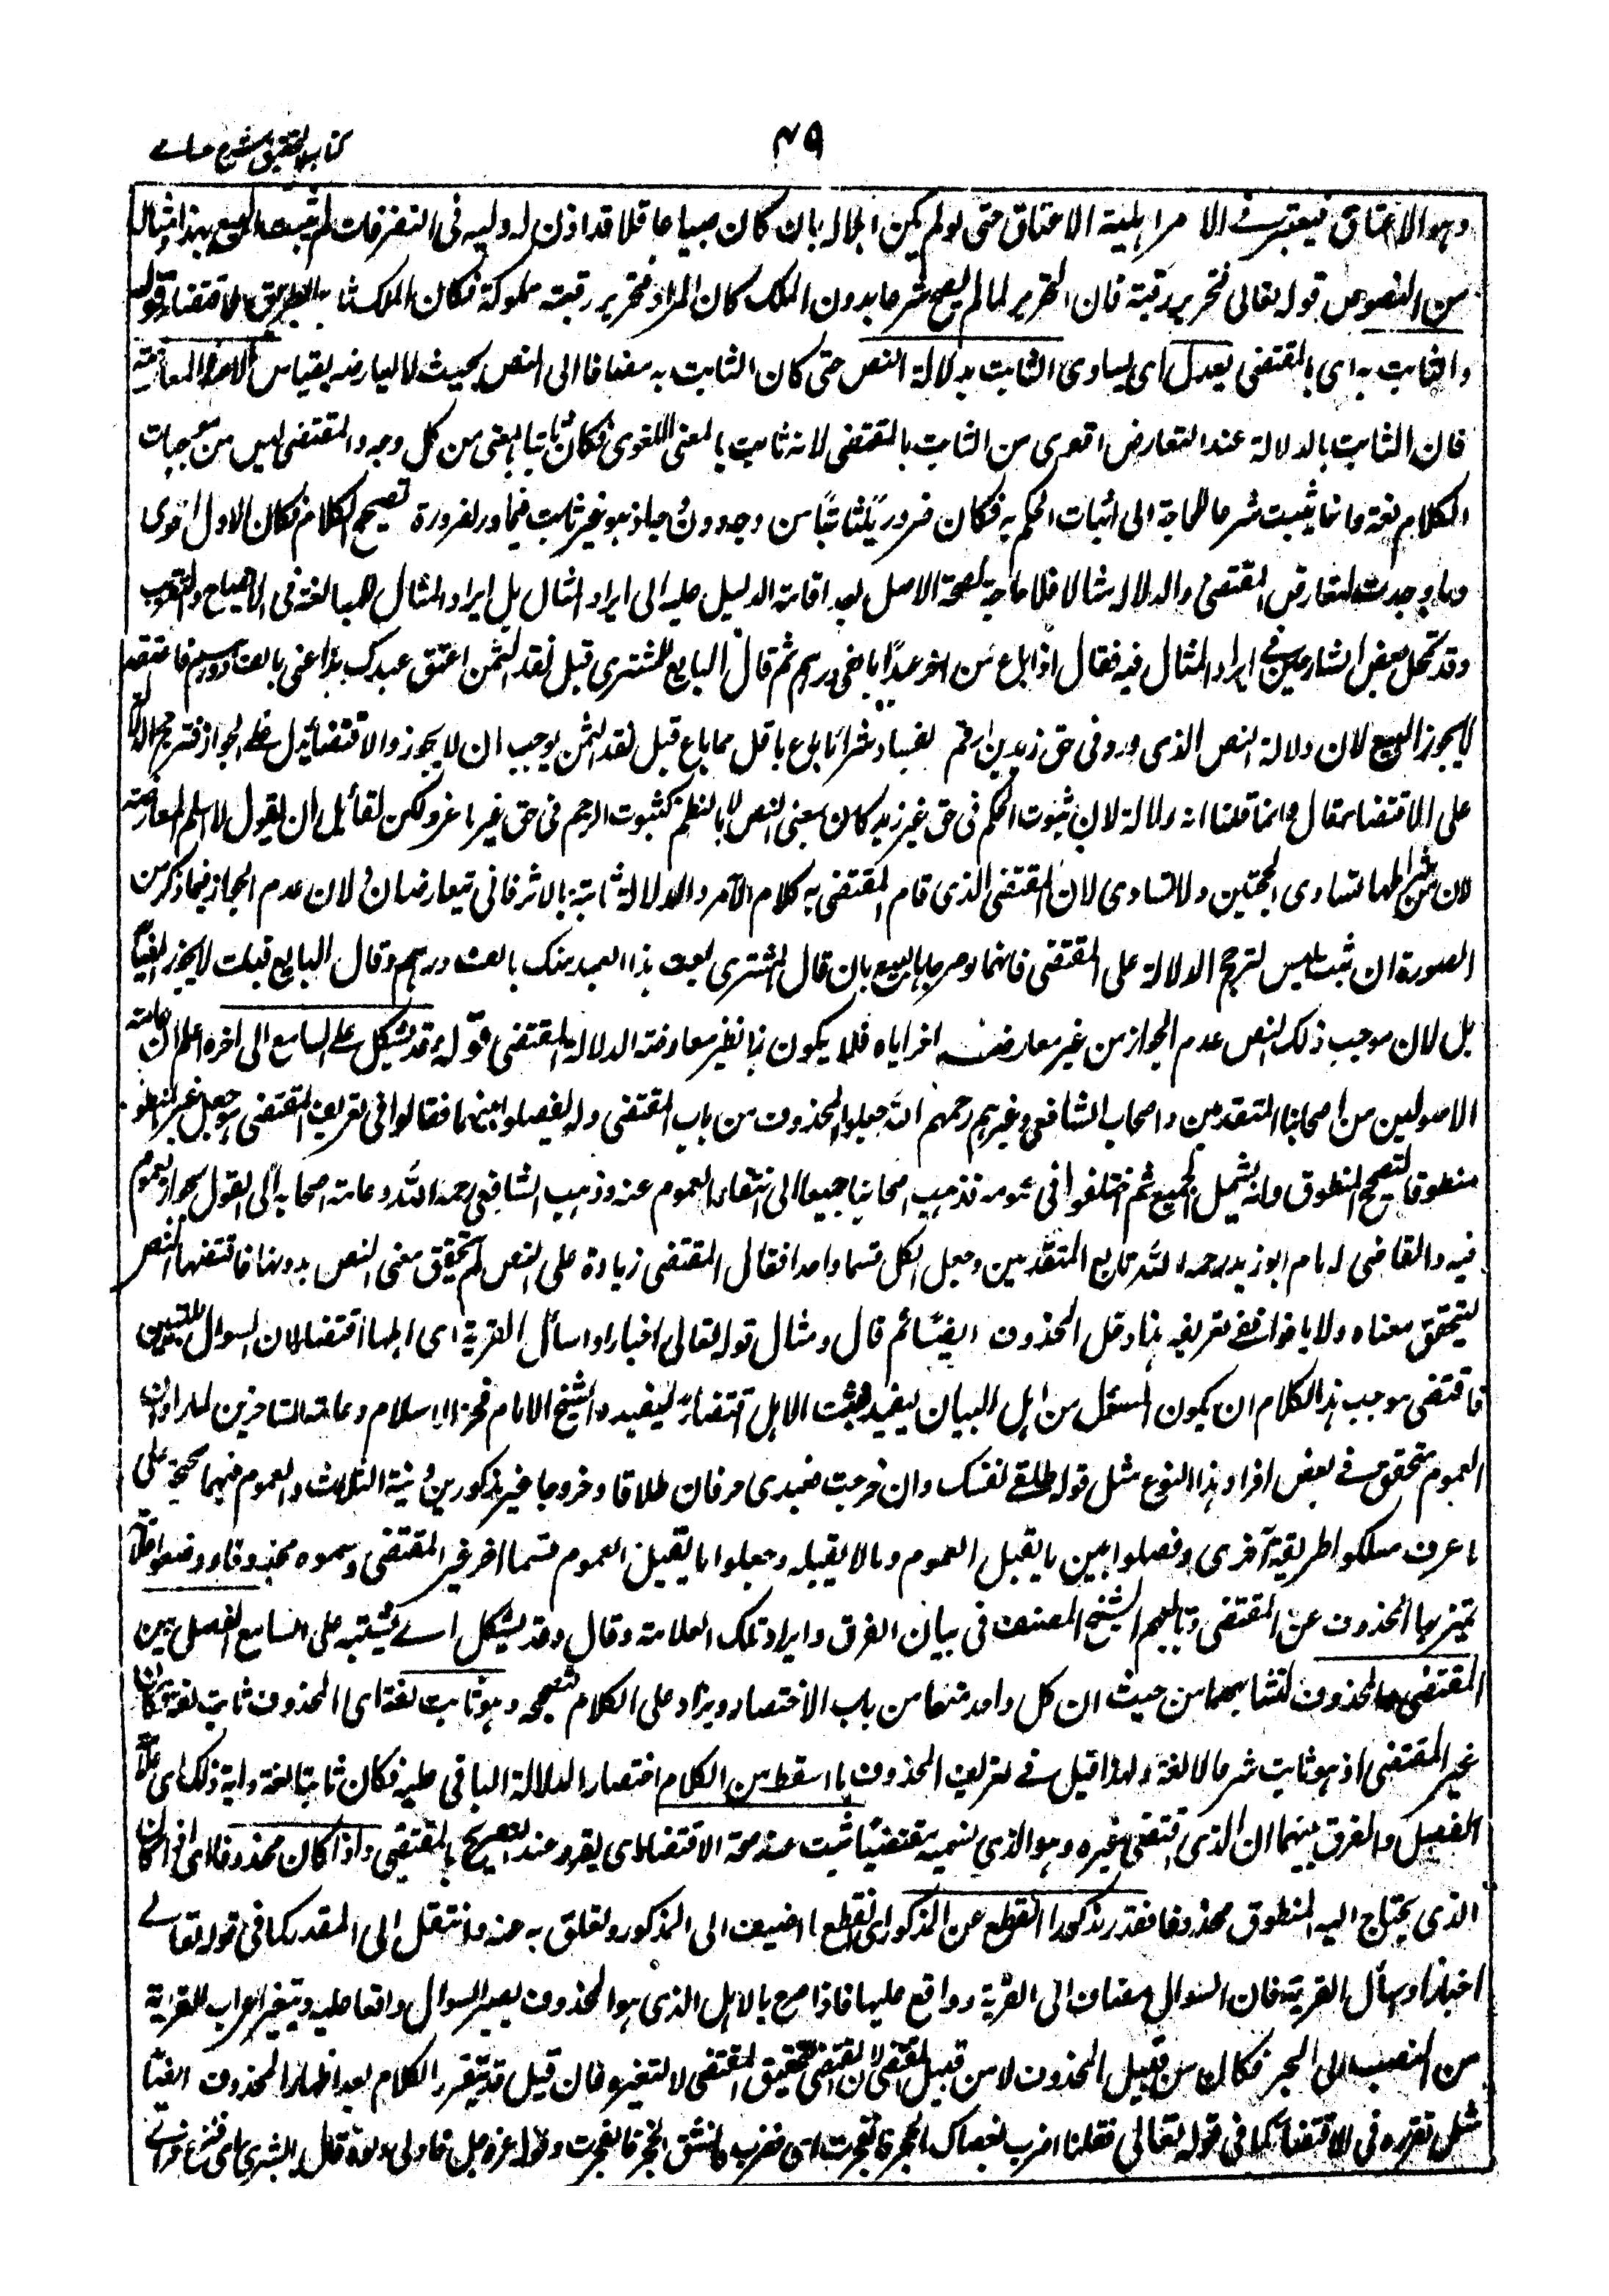 كتاب التحقيق شرح حسامي
۴۹
وهو الاعتاق فيعتبر في الامر اهلية الاعتاق حتى لو لم يكن اهلا له بان كان صبيا عاقلا قد اذن له وليه في التصرفات لم يثبت البيع بهذا مثال
من النصوص قوله تعالى فتحرير رقبة فان التحرير لما لم يصح شرعا بدون الملك كان المراد فتحرير رقبته مملوكة فكان الملك ثابتا بطريق الاقتضاء قوله
والثابت به اى بالمقتضى يعدل اى يساوى الثابت بدلالة النص حتى كان الثابت به مضافا الى النص بحيث لا يعارضه القياس الا عند المعارضة
فان الثابت بالدلالة عند التعارض اقوى من الثابت بالمقتضى لانه ثابت بالمعنى اللغوى فكان ثابتا بالمعنى من كل وجه والمقتضى ليس من موجبات
الكلام لغة وانما يثبت شرعا للحاجة الى اثبات الحكم به فكان ضروريا ثابتا من وجه دون وجه اذ هو غير ثابت فيما وراء ضرورة تصحيح الكلام فكان الاول اقوى
وما وجدت لتعارض المقتضى والدلالة مثالا فلا حاجة لصحة الاصل بعد اقامة الدليل عليه الى ايراد المثال بل ايراد المثال للمبالغة في الايضاح والتقريب
وقد تمحل بعض الشارحين في ايراد المثال فيه فقال اذا باع من اخر عبدا بالفى درهم ثم قال البايع للمشترى قبل نقد الثمن اعتق عبدك هذا عنى بالف درهم فاعتقه
لا يجوز البيع لان دلالة النص الذى ورد في حق زيد بن ارقم بفساد شراء ما باع باقل مما باع قبل نقد الثمن يوجب ان لا يجوز والاقتضاء يدل على الجواز فترجح الدلالة
على الاقتضاء قال وانما قلنا انه دلالة لان ثبوت الحكم في حق غير زيد كان بمعنى النص لا بالنظم كثبوت الرجم في حق غير ماعز ولكن لقائل ان يقول لا نسلم المعارضة
لان من شرطها تساوى الحجتين ولا تساوى لان المقتضى الذى قام المقتضى به كلام الآمر والدلالة ثابتة بالاثر فانى يتعارضان ولان عدم الجواز فيما ذكر من
الصورة ان ثبت ليس لترجح الدلالة على المقتضى فانهما لو صرحا بالبيع بان قال المشترى بعت هذا العبد منك بالف درهم وقال البايع قبلت لا يجوز ايضا
بل لان موجب ذلك النص عدم الجواز من غير معارضة اخر اياه فلا يكون هذا نظير معارضة الدلالة المقتضى قوله وقد يشكل على السامع الى اخره اعلم ان عامة
الاصوليين من اصحابنا المتقدمين واصحاب الشافعى وغيرهم رحمهم الله جعلوا المحذوف من باب المقتضى ولم يفصلوا بينهما فقالوا في تعريف المقتضى هو جعل غير المنطوق
منطوقا لتصحيح المنطوق وانه يشمل الجميع ثم اختلفوا في عمومه فذهب اصحابنا جميعا الى انتفاء العموم عنه وذهب الشافعى رحمه الله وعامة اصحابه الى القول بجواز العموم
فيه والقاضى الامام ابو زيد رحمه الله تابع المتقدمين وجعل الكل قسما واحدا فقال المقتضى زيادة على النص لم يتحقق معنى النص بدونها فاقتضاها النص
ليتحقق معناه ولا يلغو في تعريفه هذا دخل المحذوف ايضا ثم قال ومثال قوله تعالى اخبارا واسأل القرية اى اهلها اقتضاء لان السوال للتبيين
فاقتضى موجب هذا الكلام ان يكون المسئول من اهل البيان ليفيد فيثبت الاهل اقتضاء ليفيد والشيخ الامام فخر الاسلام وعامة المتاخرين لما راوا ان
العموم متحقق في بعض افراد هذا النوع مثل قوله طلقى نفسك وان خرجت فعبدى حر فان طلاقا وخروجا غير مذكورين ونية الثلاث والعموم فيهما صحيحة على
ما عرف سلكوا طريقة اخرى وفصلوا بين ما يقبل العموم وما لا يقبله وجعلوا ما يقبل العموم قسما اخر غير المقتضى وسموه محذوفا ووضعوا علامة
تميز بها المحذوف عن المقتضى وتابعهم الشيخ المصنف في بيان الفرق وايراد تلك العلامة وقال وقد يشكل اى يشتبه على السامع الفصل بين
المقتضى والمحذوف لتشابههما من حيث ان كل واحد منهما من باب الاختصار ويزاد على الكلام لتصحيحه وهو ثابت لغة اى المحذوف ثابت لغة فكان
غير المقتضى اذ هو ثابت شرعا لا لغة ولهذا قيل في تعريف المحذوف ما اسقط من الكلام اختصارا لدلالة الباقى عليه فكان ثابتا لغة وآية ذلك اى علامة
الفصل والفرق بينهما ان الذى اقتضى غيره وهو الذى نسميه مقتضيا ثبت عند صحة الاقتضاء اى يقرر عند التصريح بالمقتضى واذا كان محذوفا اى اذا كان
الذى يحتاج اليه المنطوق محذوفا فقدر مذكورا انقطع عن المذكور اى انقطع ما اضيف الى المذكور وتعلق به عنه وانتقل الى المقدر كما في قوله تعالى
اخبارا واسأل القرية فان السوال مضاف الى القرية وواقع عليها فاذا صرح بالاهل الذى هو المحذوف يصير السوال واقعا عليه ويتغير اعراب القرية
من النصب الى الجر فكان من قبيل المحذوف لا من قبيل المقتضى لان المقتضى لتحقيق المقتضى لا لتغييره فان قيل قد يتقرر الكلام بعد اظهار المحذوف ايضا
مثل تقرره في الاقتضاء كما في قوله تعالى فقلنا اضرب بعصاك الحجر فانفجرت اى فضرب فانشق الحجر فانفجرت وقوله عز وجل فادلى دلوه قال يا بشرى اى فنزع فراى